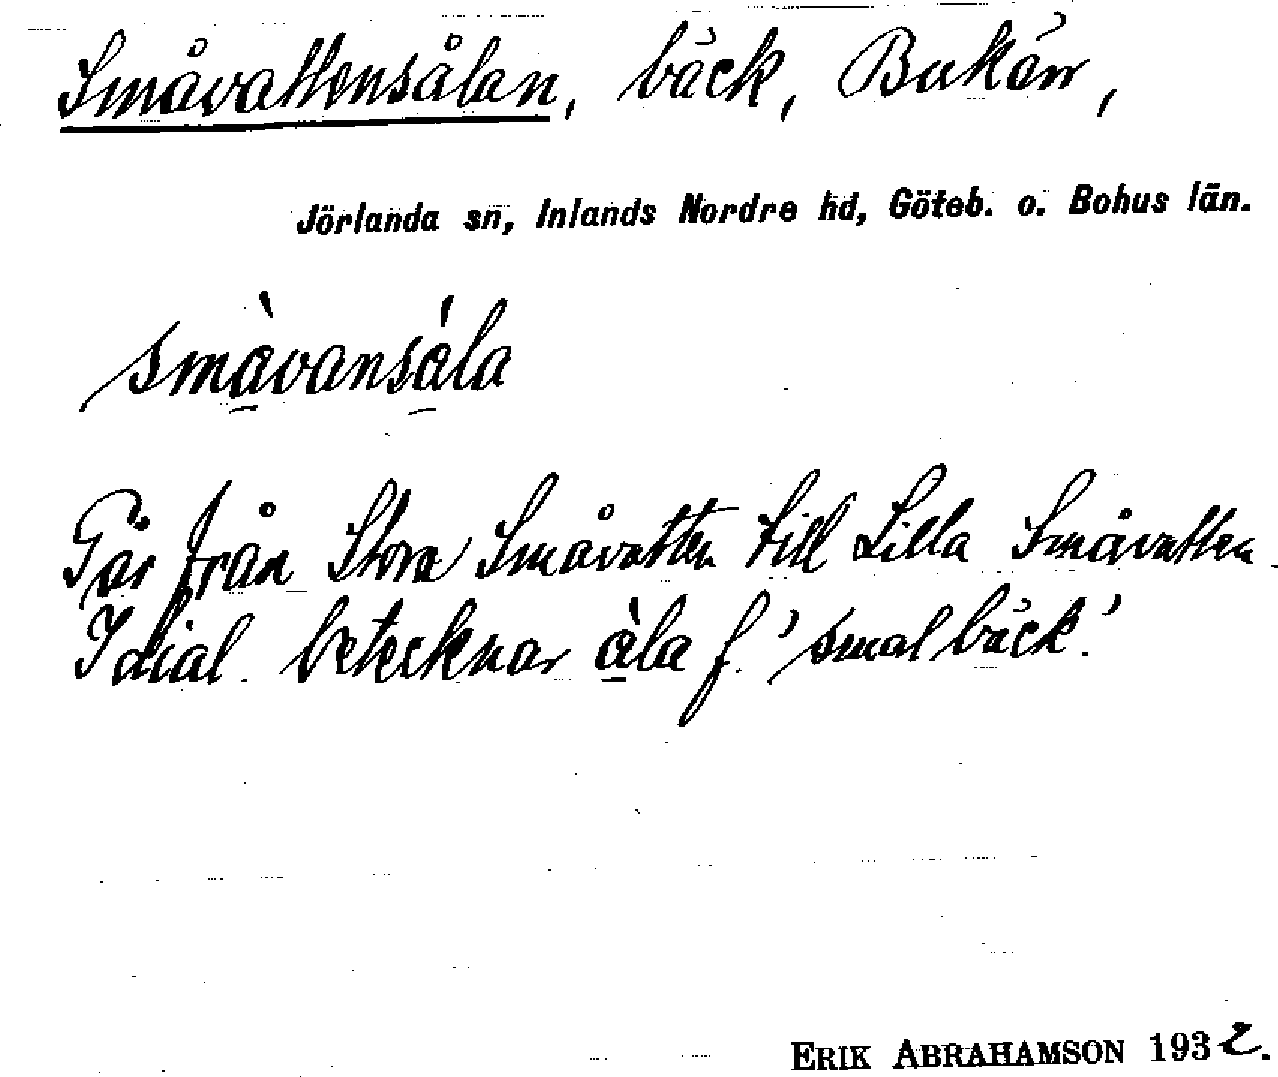 Småvattensålan, bäck, Bukärr,
Jörlanda sn, Inlands Nordre hd, Göteb. o. Bohus län.
smàvansála
Går från Stora Småvatten till Lilla Småvatten.
I dial. betecknar àla f. 'smal bäck'.
ERIK ABRAHAMSON 1932.